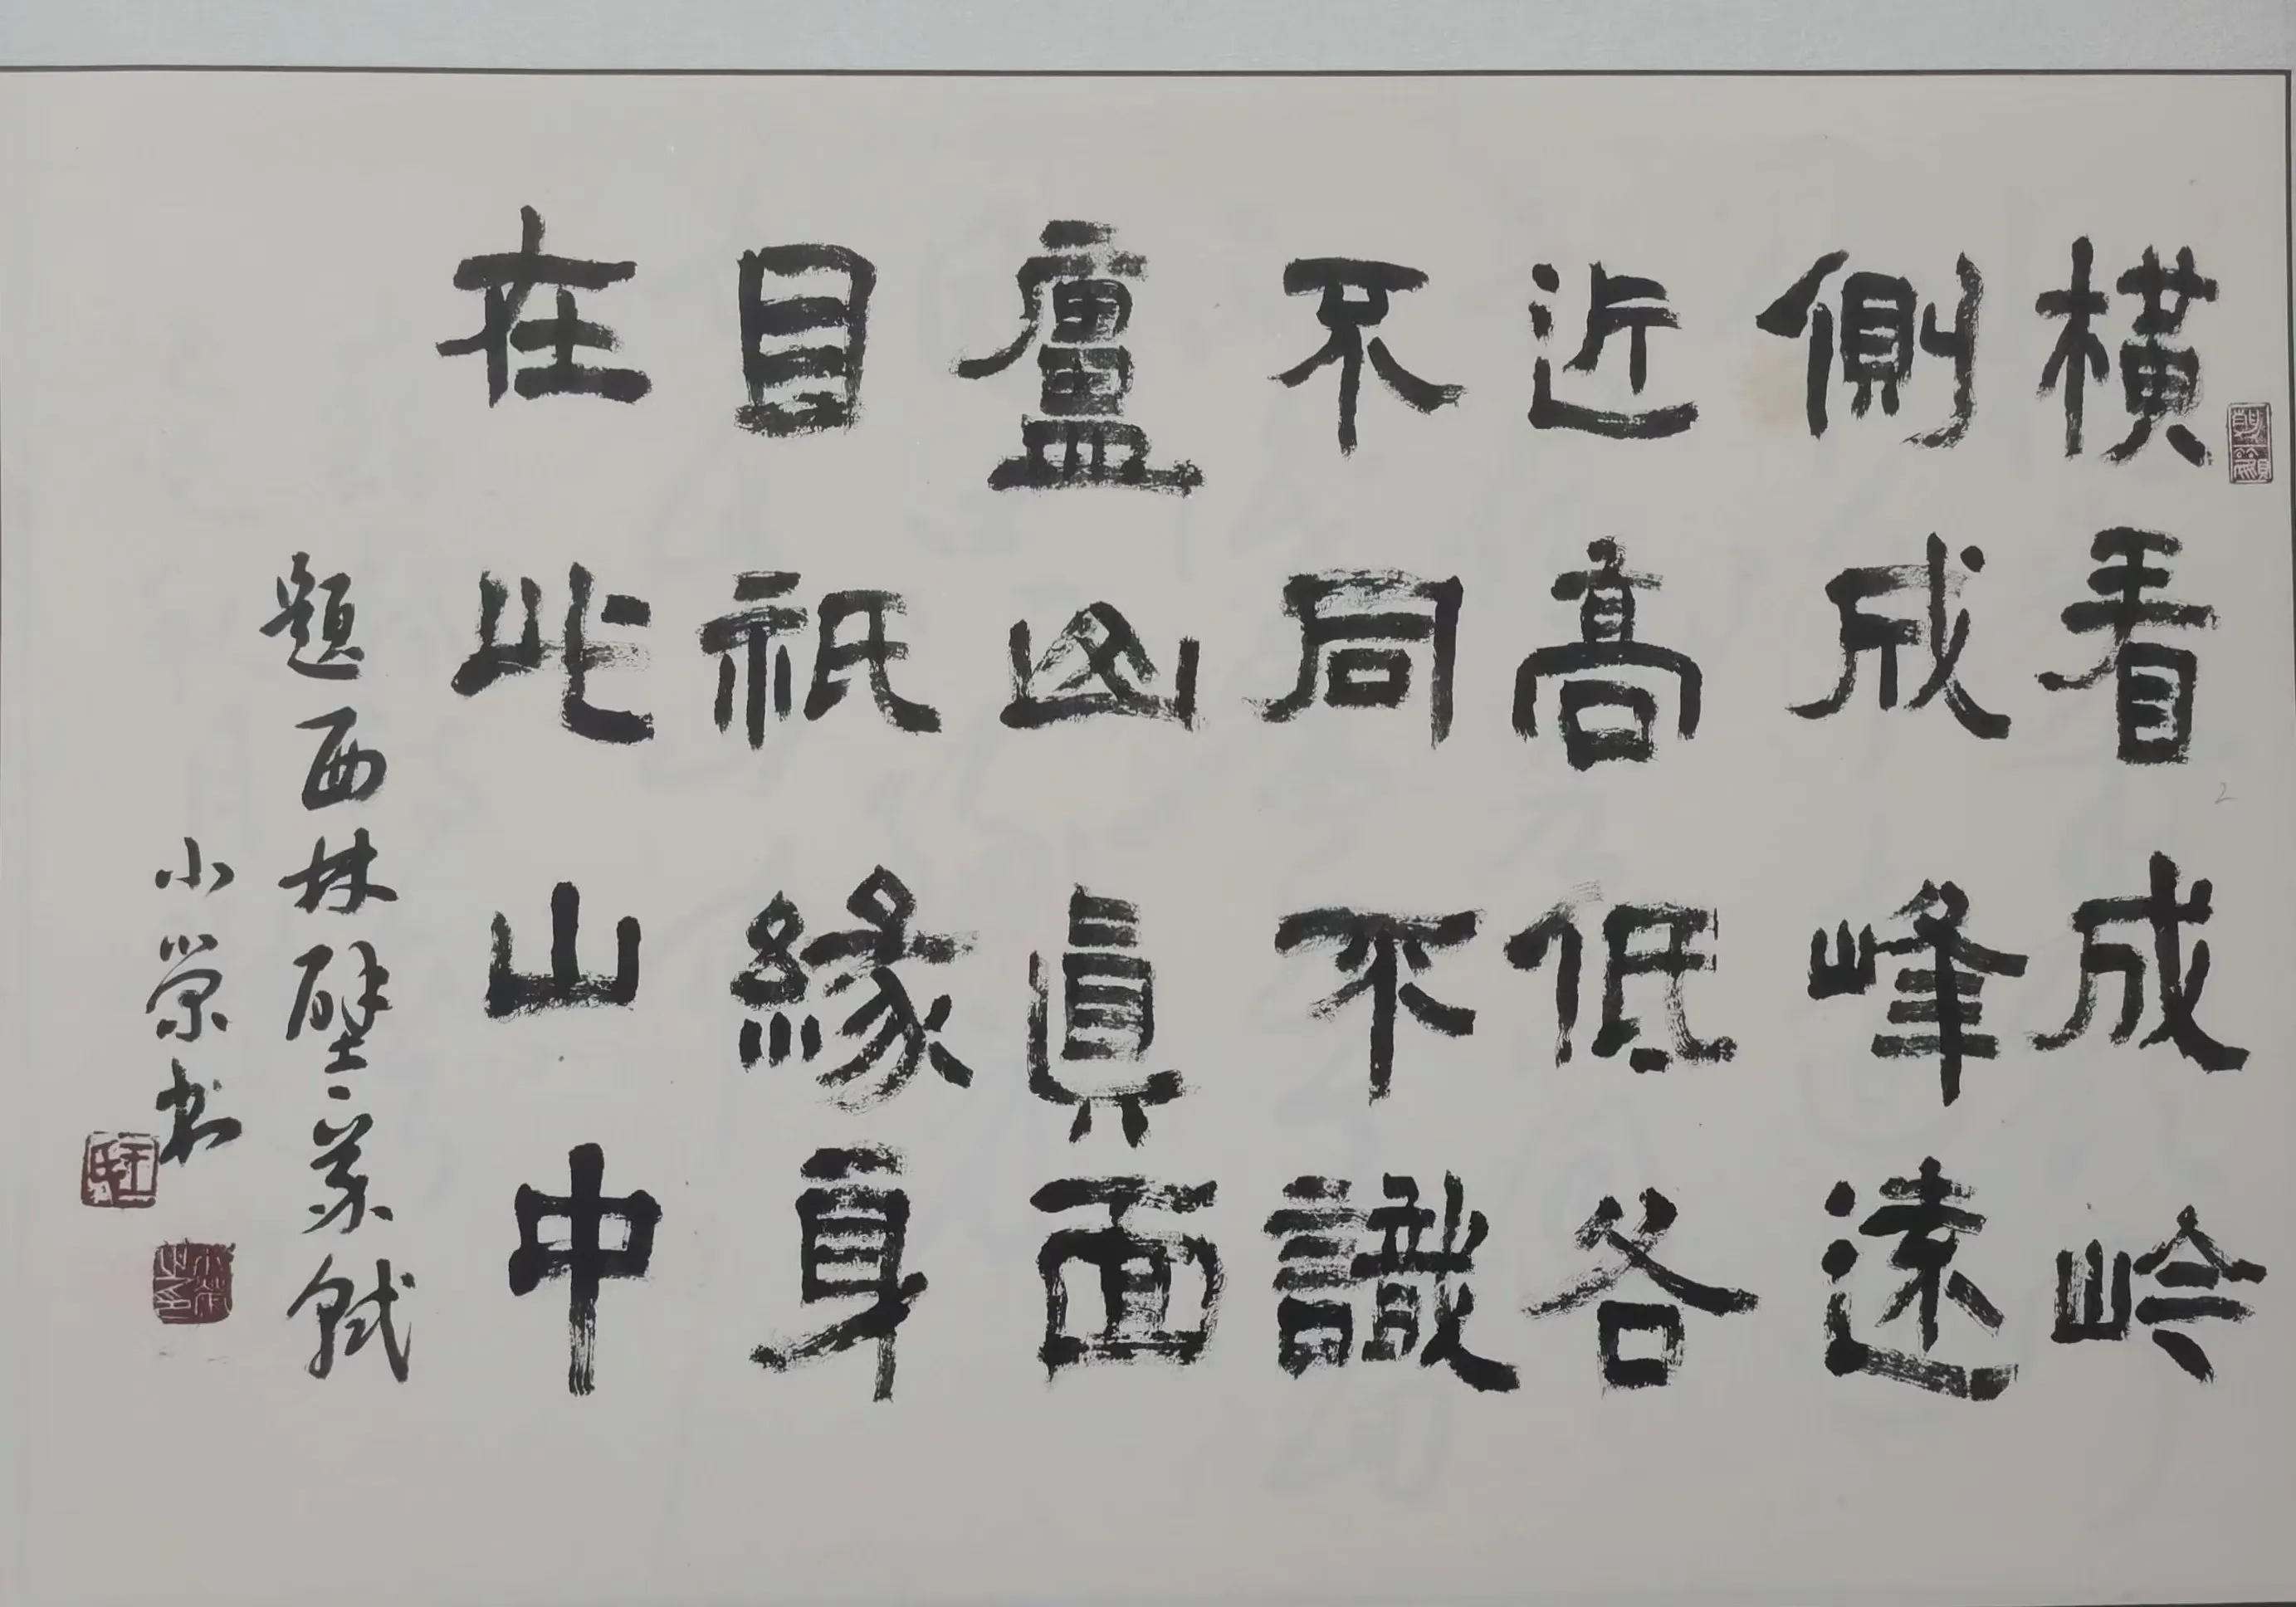 橫看成岭
側成峰遠
近高低各
不同不識
廬山眞面
目祇緣身
在此山中
題西林壁蘇軾
小榮书